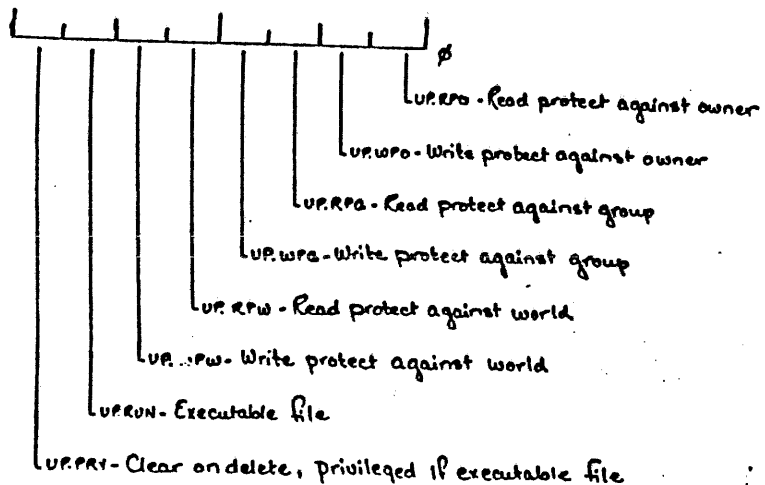 ø
UP.RPO - Read protect against owner
UP.WPO - Write protect against owner
UP.RPG - Read protect against group
UP.WPG - Write protect against group
UP.RPW - Read protect against world
Write protect against world
UP.RUN - Executable file
UP.PRV - Clear on delete, privileged if executable file